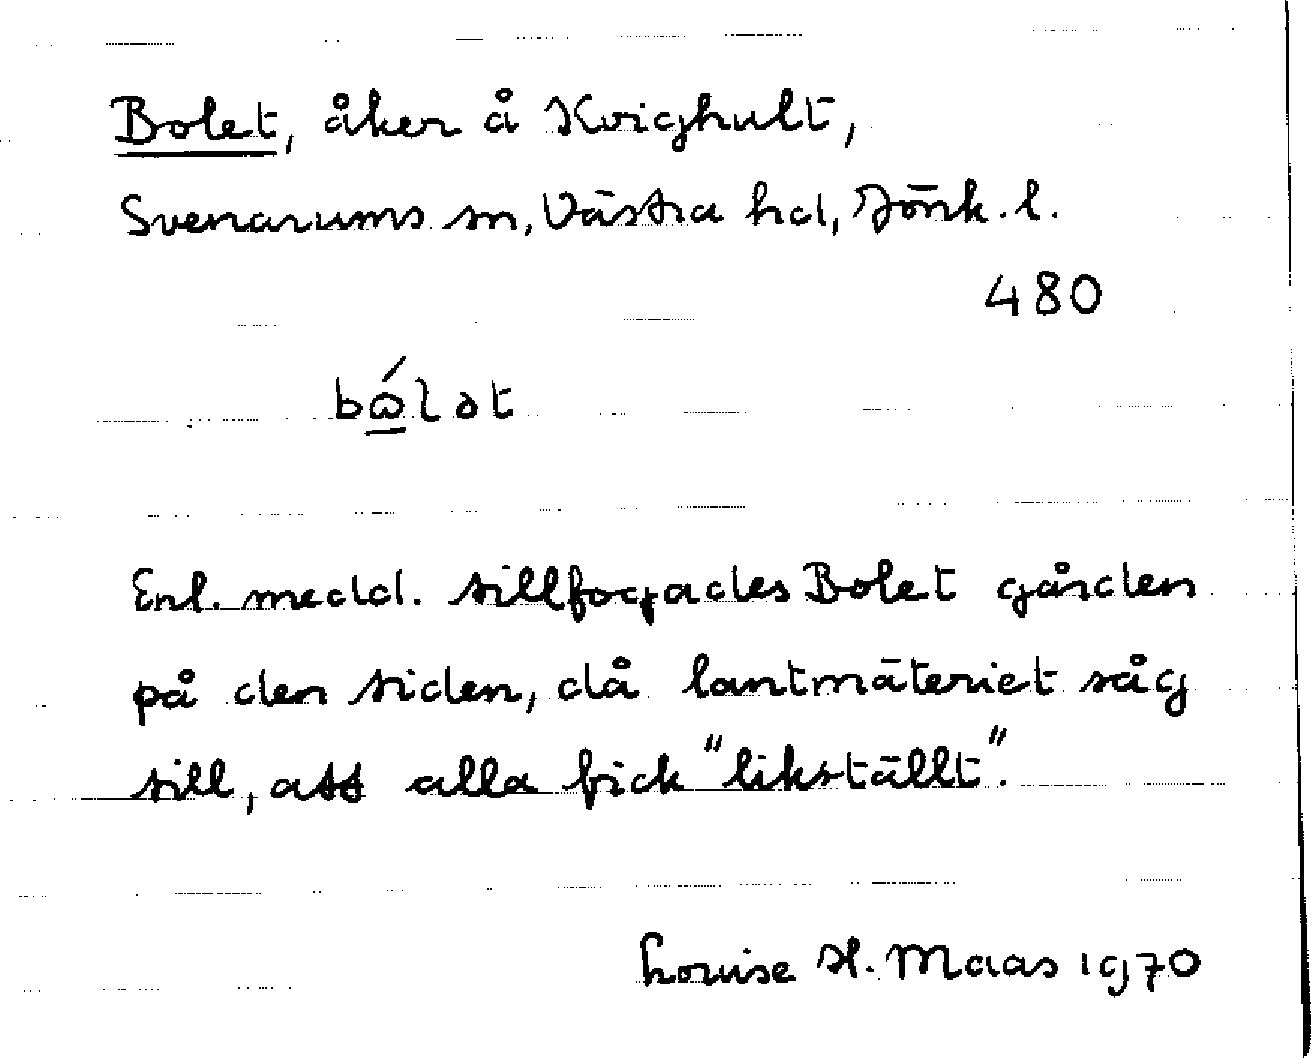 Bolet, åker å Kvighult,
Svenarums sn, Västra hd, Jönk. l.
480
bώlət
Enl. medd. tillfogades Bolet gården
på den tiden, då lantmäteriet såg
till, att alla fick "likställt".
Louise H. Maas 1970